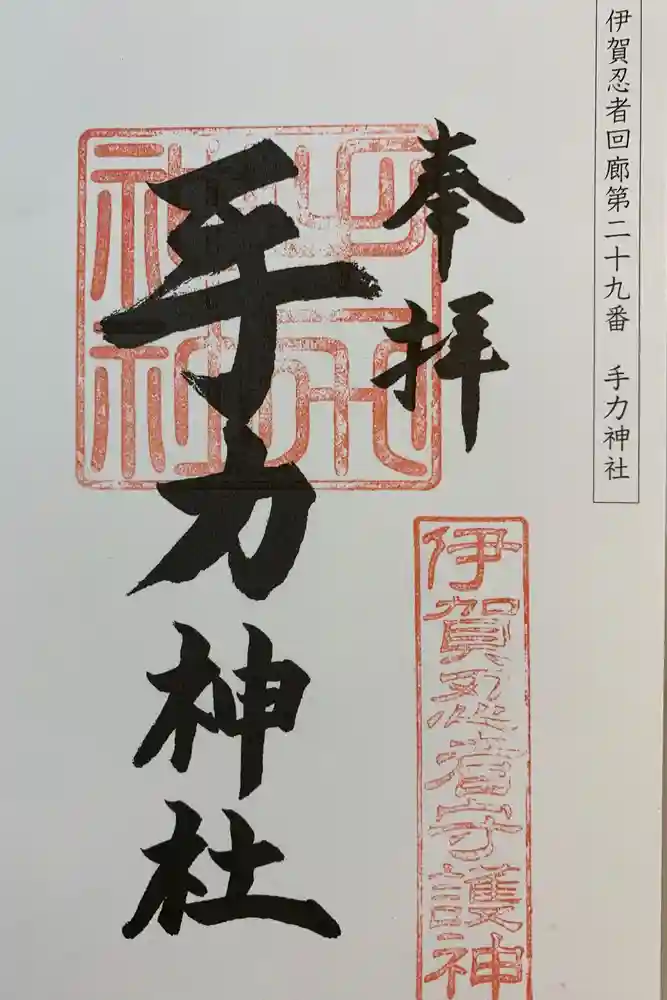 伊賀忍者回廊第二十九番　手力神社
奉拝
伊賀忍者守護神
手力神社